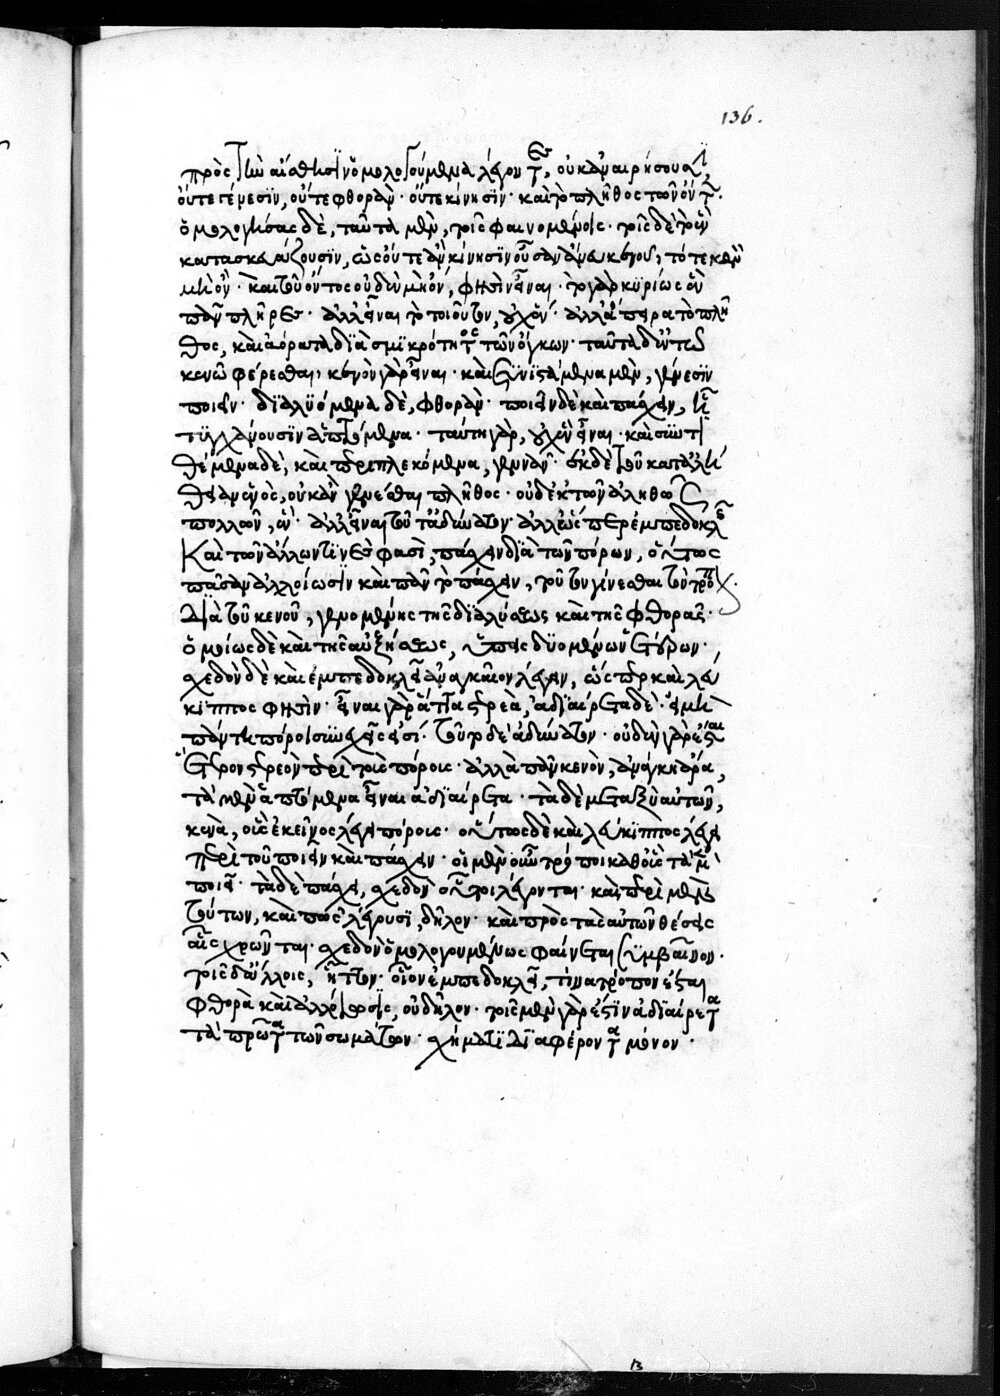 136.
πρὸς τὴν αἴσθησιν ὁμολογούμενα λέγοντες, οὐκ ἀναιρήσουσιν
οὔτε γένεσϊν, οὔτε φθορὰν· οὔτε κίνησϊν· καὶ τὸ πλῆθος τῶν ὄντων·
ὁμολογήσας δὲ, ταῦτα μὲν, τοῖς φαινομένοις· τοῖς δὲ τὸ ἓν
κατασκευάζουσϊν, ὡς οὔτε ἂν κίνησϊν οὖσαν ἄνευ κενοῦ, τό τε κενὸν
μὴ ὂν· καὶ τοῦ ὄντος οὐδὲν μὴ ὄν, φησὶν εἶναι· τὸ γὰρ κυρίως ὂν
παμπλῆρες· ἀλλ' εἶναι τὸ τοιοῦτον, οὐχ ἕν· ἀλλ' ἄπειρα τὸ πλῆ
θος, καὶ ἀόρατα δϊὰ σμϊκρότητος τῶν ὄγκων· ταῦτα δ' ἐν τῶ
κενῶ φέρεσθαι, κενὸν γὰρ εἶναι· καὶ συνϊστάμενα μὲν, γένεσϊν
ποιεῖν· δϊαλυόμενα δὲ, φθορὰν· ποιεῖν δὲ καὶ πάσχειν, ᾗ
τυγχάνουσϊν ἁπτόμενα· ταύτη γὰρ, οὐχ ἓν εἶναι· καὶ συντϊ
θέμενα δὲ, καὶ περιπλεκόμενα, γεννᾶν· ἐκ δὲ τοῦ κατ' ἀλή
θειαν ἑνὸς, οὐκ ἂν γενέσθαι πλῆθος· οὐδ' ἐκ τῶν ἀληθῶς
πολλῶν, ἕν· ἀλλ' εἶναι τοῦτ' ἀδύνατον· ἀλλ' ὥσπερ ἐμπεδοκλῆς
καὶ τῶν ἄλλων τϊνές φασὶ, πάσχειν δϊὰ τῶν πόρων, οὕτως
πᾶσαν ἀλλοίωσϊν καὶ πᾶν τὸ πάσχειν, τοῦτον γίνεσθαι τὸν τρόπον·
δϊὰ τοῦ κενοῦ, γενομένης τῆς δϊαλύσεως καὶ τῆς φθορᾶς·
ὁμοίως δὲ καὶ τῆς αὐξήσεως, ὑπεισδυομένων στερεῶν·
σχεδὸν δὲ καὶ ἐμπεδοκλεῖ ἀναγκαῖον λέγειν, ὥσπερ καὶ λεύ
κιππος φησὶν· εἶναι γὰρ ἄττα στερεὰ, ἀδϊαίρετα δὲ· εἰ μὴ
πάντη πόροι συνεχεῖς εἰσί· τοῦτο δὲ ἀδύνατον· οὐδὲν γὰρ ἔσται
ἕτερον στερεὸν περὶ τοὺς πόρους· ἀλλὰ πᾶν κενὸν, ἀνάγκη ἄρα,
τὰ μὲν ἁπτόμενα εἶναι ἀδϊαίρετα· τὰ δὲ μεταξὺ αὐτῶν,
κενὰ, οὓς ἐκεῖνος λέγει πόρους· οὕτως δὲ καὶ λεύκϊππος λέγει
περὶ τοῦ ποιεῖν καὶ πάσχειν· οἱ μὲν οὖν τρόποι καθ' οὓς τὰ μὲν
ποιεῖ· τὰ δὲ πάσχει, σχεδὸν οὗτοι λέγονται· καὶ περὶ μὲν
τούτων, καὶ πῶς λέγουσϊ, δῆλον· καὶ πρὸς τὰς αὐτῶν θέσεις
αἷς χρῶνται· σχεδὸν ὁμολογουμένως φαίνεται συμβαῖνον·
τοῖς δ' ἄλλοις, ἧττον· οἷον ἐμπεδοκλεῖ, τίνα τρόπον ἔσται
φθορὰ καὶ ἀλλοίωσις, οὐ δῆλον· τοῖς μὲν γὰρ ἐστϊν ἀδϊαίρετα
τὰ πρῶτα τῶν σωμάτων· σχήματϊ δϊαφέροντα μόνον·